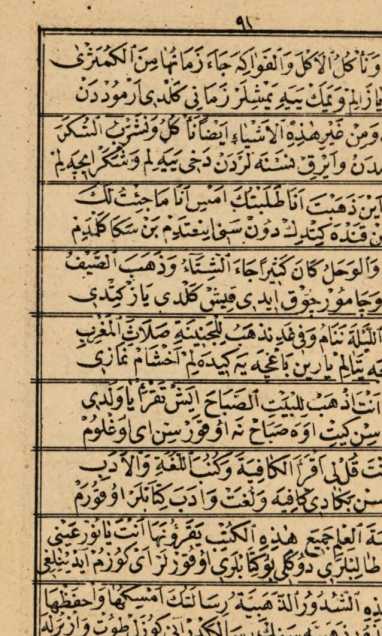 ٩١
وَنَأْكُلُ الْاَكْلَ وَالْفَوَاكِهَ جَاءَ زَمَانُهَا مِنَ الْكُمَّثْرٰى
يازالم ويمك ييه يمشلر زمانى كلدى ارموددن
وَمِنْ غَيْرِ هٰذِهِ الْاَشْيَاءِ اَيْضًا نَأْكُلُ وَنَشْرَبُ السُّكَّرَ
دن وايرق نسنه لردن دخى ييه لم وشكر ايچه لم
اَيْنَ ذَهَبْتَ اَنَا طَلَبْتُكَ اَمْسِ اَنَا مَا جِئْتُ لَكَ
قنده كتدك دون سنى ايستدم بن سكا كلمدم
وَالْوَحَلُ كَانَ كَثِيرًا جَاءَ الشِّتَاءُ وَذَهَبَ الصَّيْفُ
وچامور چوق ايدى قيش كلدى ياز كتدى
اللَّيْلَةَ نَنَامُ وَفِى غَدٍ نَذْهَبُ لِلْجُنَيْنَةِ صَلَاةَ الْمَغْرِبِ
يتالم يارين باغچه يه كيده لم اخشام نمازى
اَنْتَ اذْهَبْ لِلْبَيْتِ الصَّبَاحَ اَيْشْ تَقْرَأْ يَا وَلَدِى
سن كيت اوه صباح نه اوقورسن اى اوغلوم
قُلْ لِى اَقْرَأُ الْكَافِيَةَ وَكُتُبَ اللُّغَةِ وَالْاَدَبِ
سن بكا دى كافيه ولغت وادب كتابلر اوقورم
الْعِلْمِ جَمِيعُ هٰذِهِ الْكُتُبِ يَقْرَؤُنَهَا اَنْتَ يَا نُورَ عَيْنِى
طالبلرى دوكلى بو كتابلرى اوقورلر اى كوزم
الشُّذُورُ الذَّهَبِيَّةُ رِسَالَتُكَ اَمْسِكْهَا وَاحْفَظْهَا